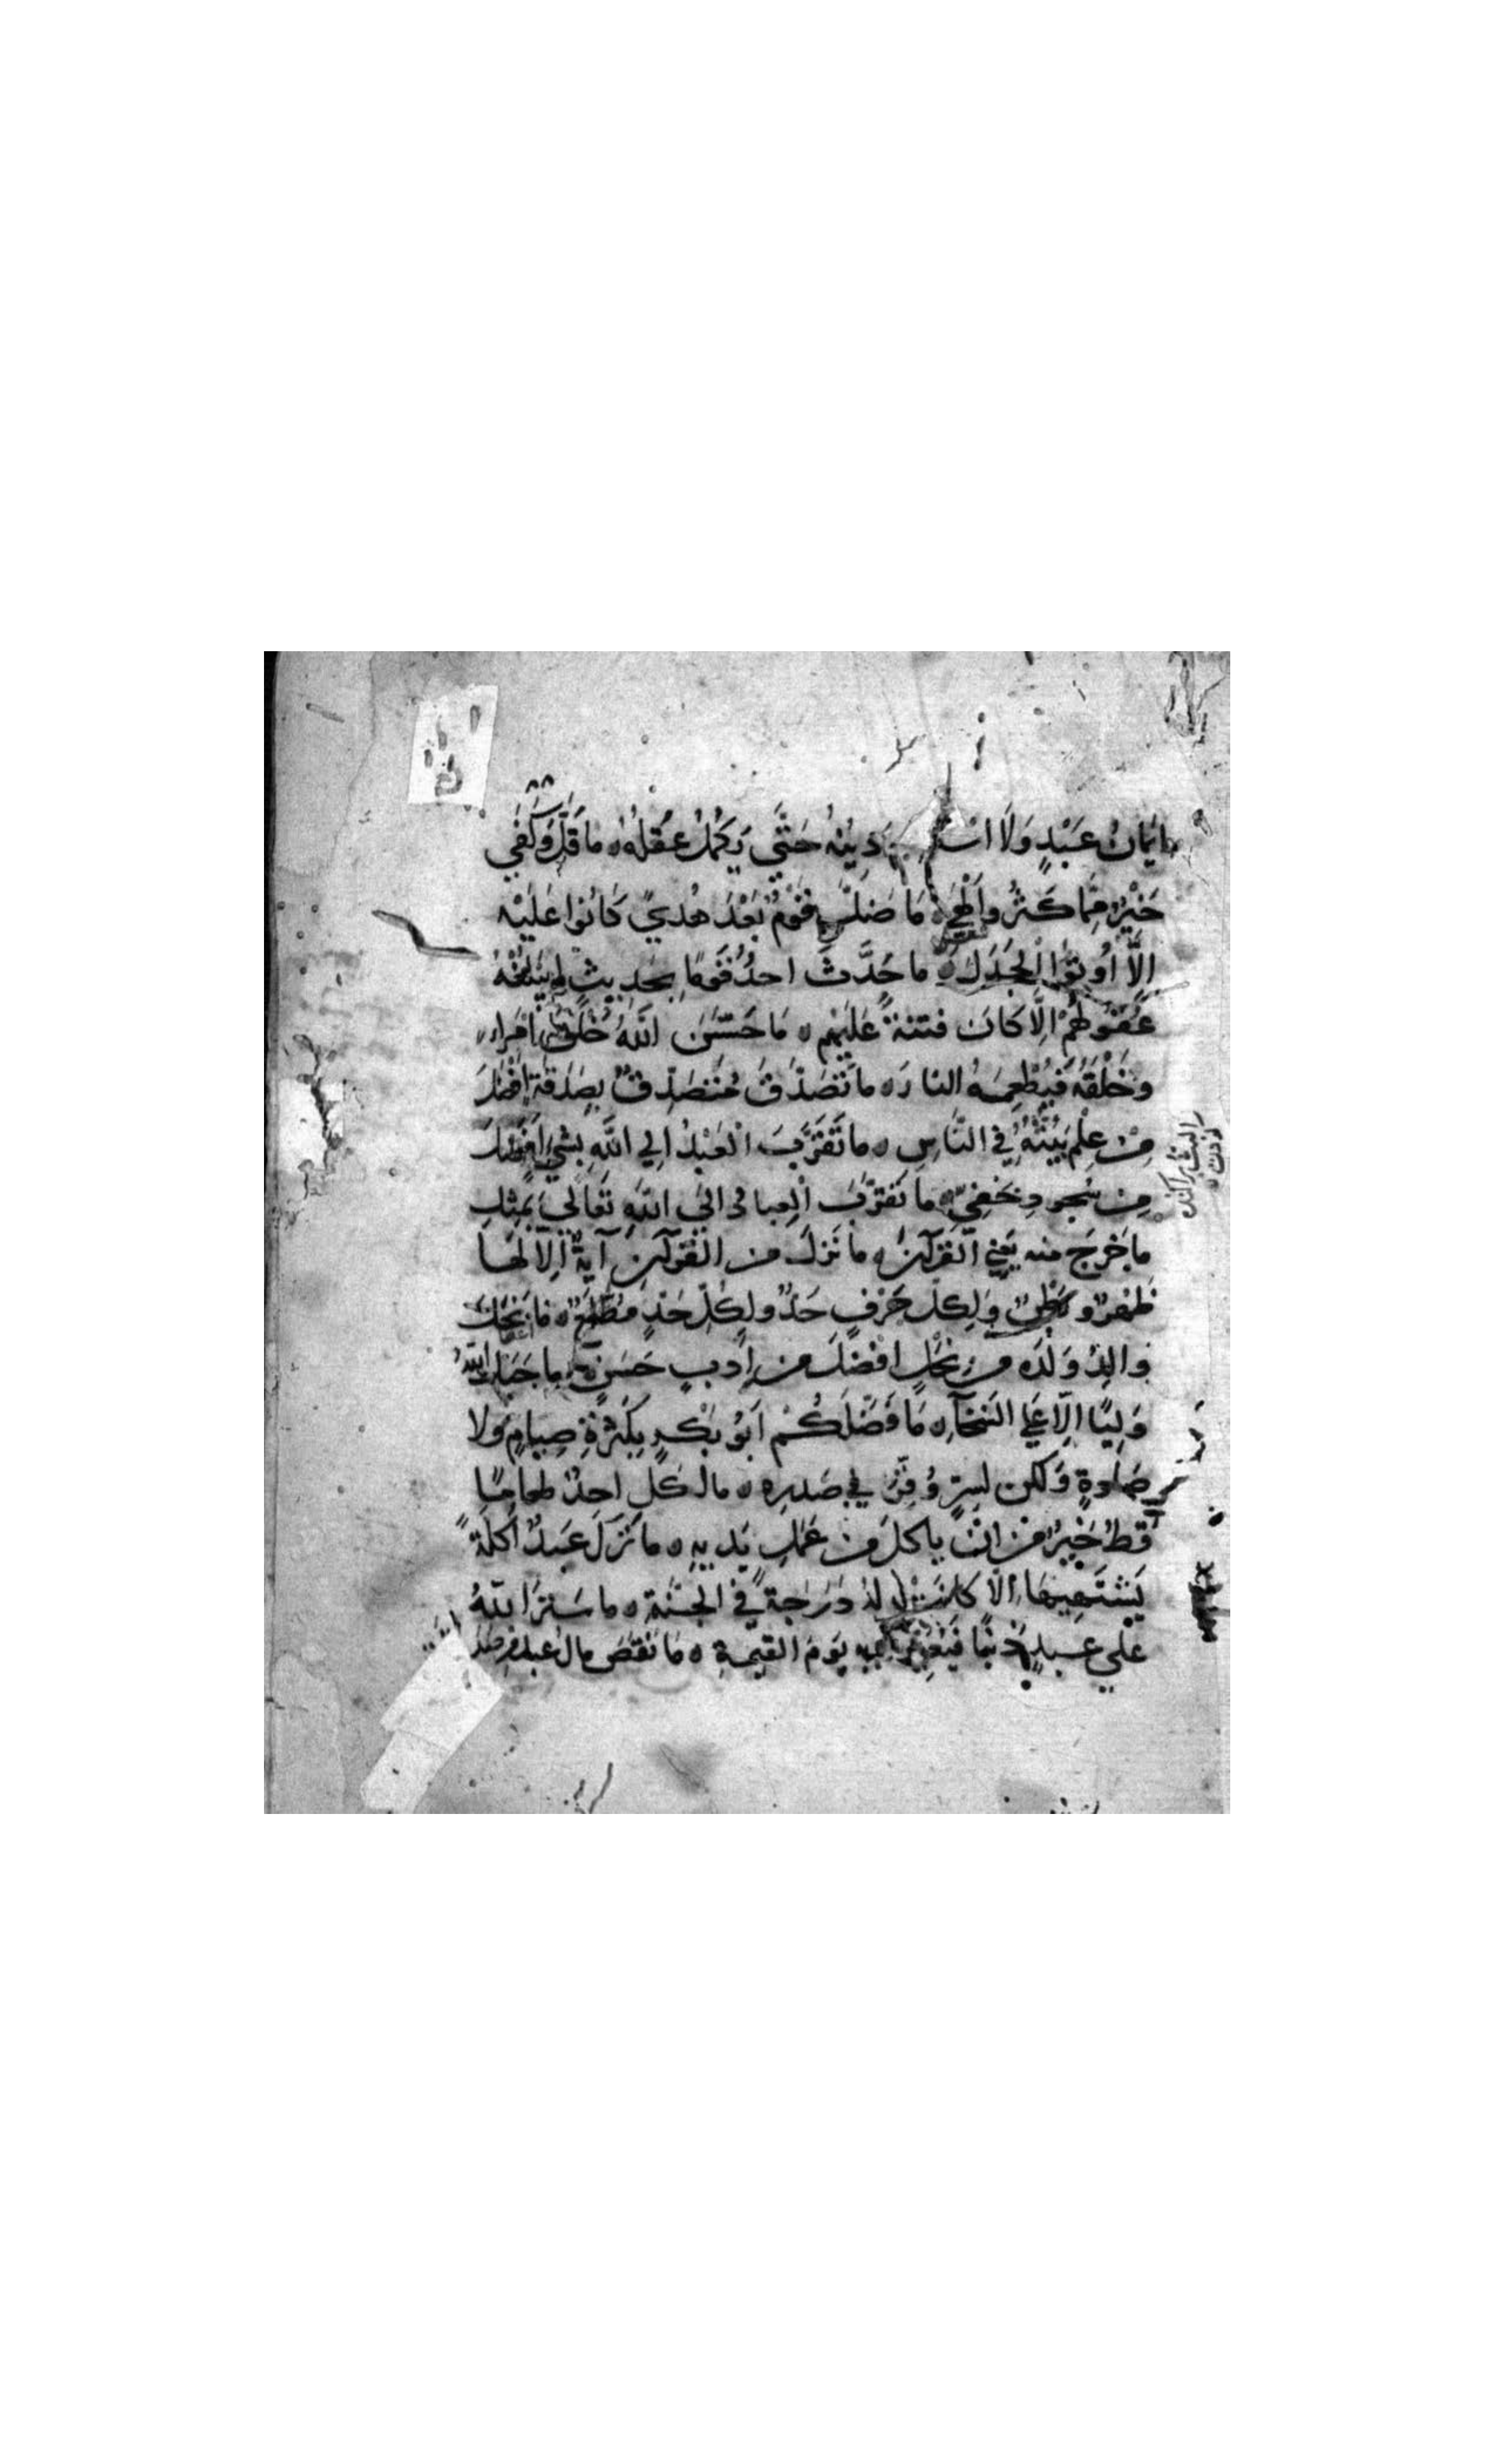 ايمَانُ عَبْدٍ وَلَا اسْتَقَامَ دِيْنُهُ حَتَّي يَكْمُلَ عَقْلُهُ ه مَا قَلَّ وَكَفَي
خَيْرٌ مِمَّا كَثُرَ وَالْهَي ه مَا ضَلَّ قَوْمٌ بَعْدَ هُديً كَانُوا عَلَيْهِ
اِلَّا اُوتُوا الْجَدَلَ ه مَا حَدَّثَ احدٌ قَومًا بِحَديثٍ لم يَبْلغْهُ
عُقُولُهُمْ اِلَّا كَانَ فتنةً عَلَيْهِم ه مَا حَسَّنَ اللّهُ خُلُقَ امْرءٍ
وَخَلْقَهُ فَيُطْعِمَهُ النارَ ه مَا تَصَدَّقَ مُتَصَدِّقٌ بِصَدَقَةٍ اَفْضَلَ
مِنْ عِلْمٍ يَبُثُّهُ فِي النَّاسِ ه مَا تَقَرَّبَ الْعَبْدُ اِلي اللَّهِ بِشَيْءٍ اَفْضَلَ
مِنْ سُجودٍ خَفِيٍّ ه ما تَقَرَّبَ الْعِبادُ الَي اللّهِ تَعَالَي بِمِثْلِ
مَا خَرَجَ منه يَعْنِي الْقُرْآنَ ه مَا نَزَلَ مِن الْقُرْآنِ آيَةٌ اِلَّا لَهَا
ظَهْرٌ وبَطْنٌ وَلِكلِّ حَرْفٍ حَدٌّ ولِكُلِّ حَدٍّ مُطَّلَعٌ ه مَا نَحَلَ
وَالِدٌ وَلَدَه مِنْ نُحْلٍ اَفْضَلَ مِن اَدبٍ حَسَنٍ ه مَا جَبَلَ اللّهُ
وَلِيًّا اِلَّا عَلي السَّخَآءِ ه مَا فَضَلَكُمْ اَبُو بَكْرٍ بِكَثْرَةِ صِيَامٍ وَلَا
صَلوةٍ وَلَكن لِسِرٍّ وُقِرَ فِي صَدرِهِ ه مَا اكَلَ احدٌ طعامًا
قَطُّ خَيْرٌ مِنْ انْ يَاكلَ مِن عَمَلِ يَدَيهِ ه مَا تَرَكَ عَبدٌ اكلَةً
يَشْتَهِيهَا اِلَّا كانَتْ لَهُ دَرَجَةً فِي الْجَنَّةِ ه مَا سَتَرَ اللّهُ
عَلي عَبدٍ ذَنبًا فَيُعَيِّرُهُ بِه يَوْمَ القيمةِ ه مَا نَقَصَ مَالُ عَبدٍ مِنْ صَدَ